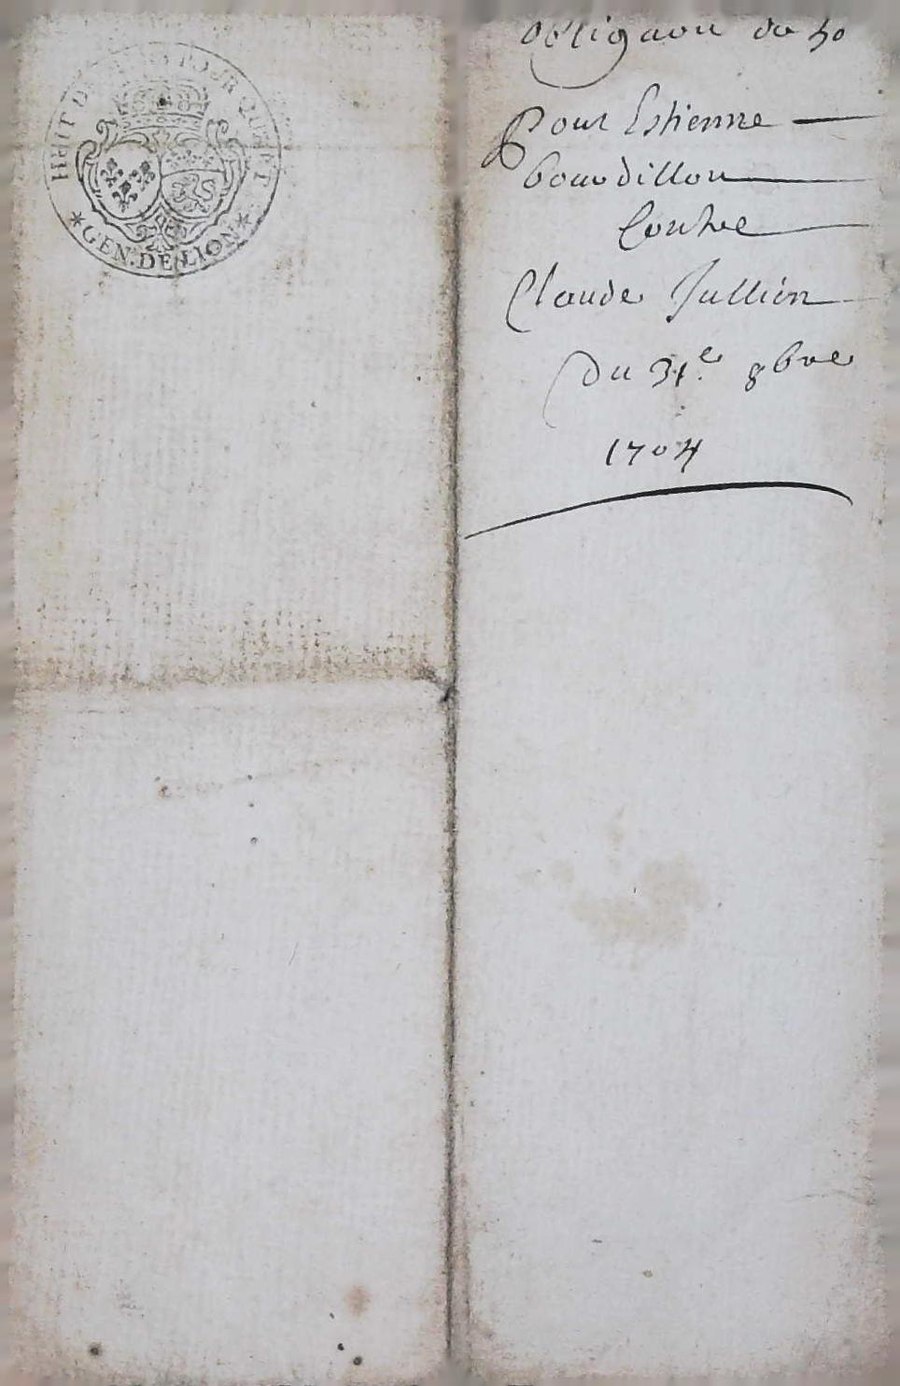 HUIT DEN POUR QU ET
* GEN. DE LION *
obligaon de 50
Pour Estienne
bourdillon
Contre
Claude Jullien
Du 31e. 8bre
1704